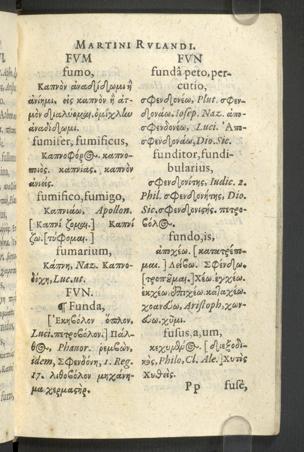 MARTINI RVLANDI.
FVM
fumo,
Καπνὸν ἀναδίδωμι ἢ
ἀνίημι, εἰς καπνὸν ἢ ἀτ-
μὸν διαλύομαι, ὀμίχλην
ἀναδίδωμι.
fumifer, fumificus,
Καπνοφόρος. καπνο-
ποιός. καπνίας. καπνὸν
ἀνιείς.
fumifico, fumigo,
Καπνιάω, Apollon.
fumarium,
Κάπνη, Naz. Καπνο-
δόχη, Luc. ut.
FVN.
¶ Funda,
[Ἑκηβόλον ὅπλον,
Luci. πετροβόλον.] Πάλ-
Phanor. ῥεμβών,
idem, Σφενδόνη, 1. Reg.
17. λιθοβόλον μηχάνη-
μα χερμαστήρ.
FVN
fundâ peto, per-
cutio,
σφενδονέω, Plut. σφεν-
δονάω. Iosep. Naz. ἀπο-
σφενδονέω, Luci. Ἀπο-
σφενδονάω, Dio. Sic.
funditor, fundi-
bularius,
σφενδονίτης, Iudic. 2.
Phil. σφενδονήτης, Dio.
Sic. σφενδονιστής. πετρο-
βόλος.
fundo, is,
ἀποχέω. [καταπρέπο-
μαι.] Λείβω. Σφενδω,
Χέω. ἐγχέω.
ἐκχέω. ἐπιχέω. καταχέω.
Aristoph.
fusus, a, um,
κεχυμένος. [διεξοδι-
κὸς, Philo, Cl. Ale.] Χυτὸς
Χυθείς.
Pp fusè,